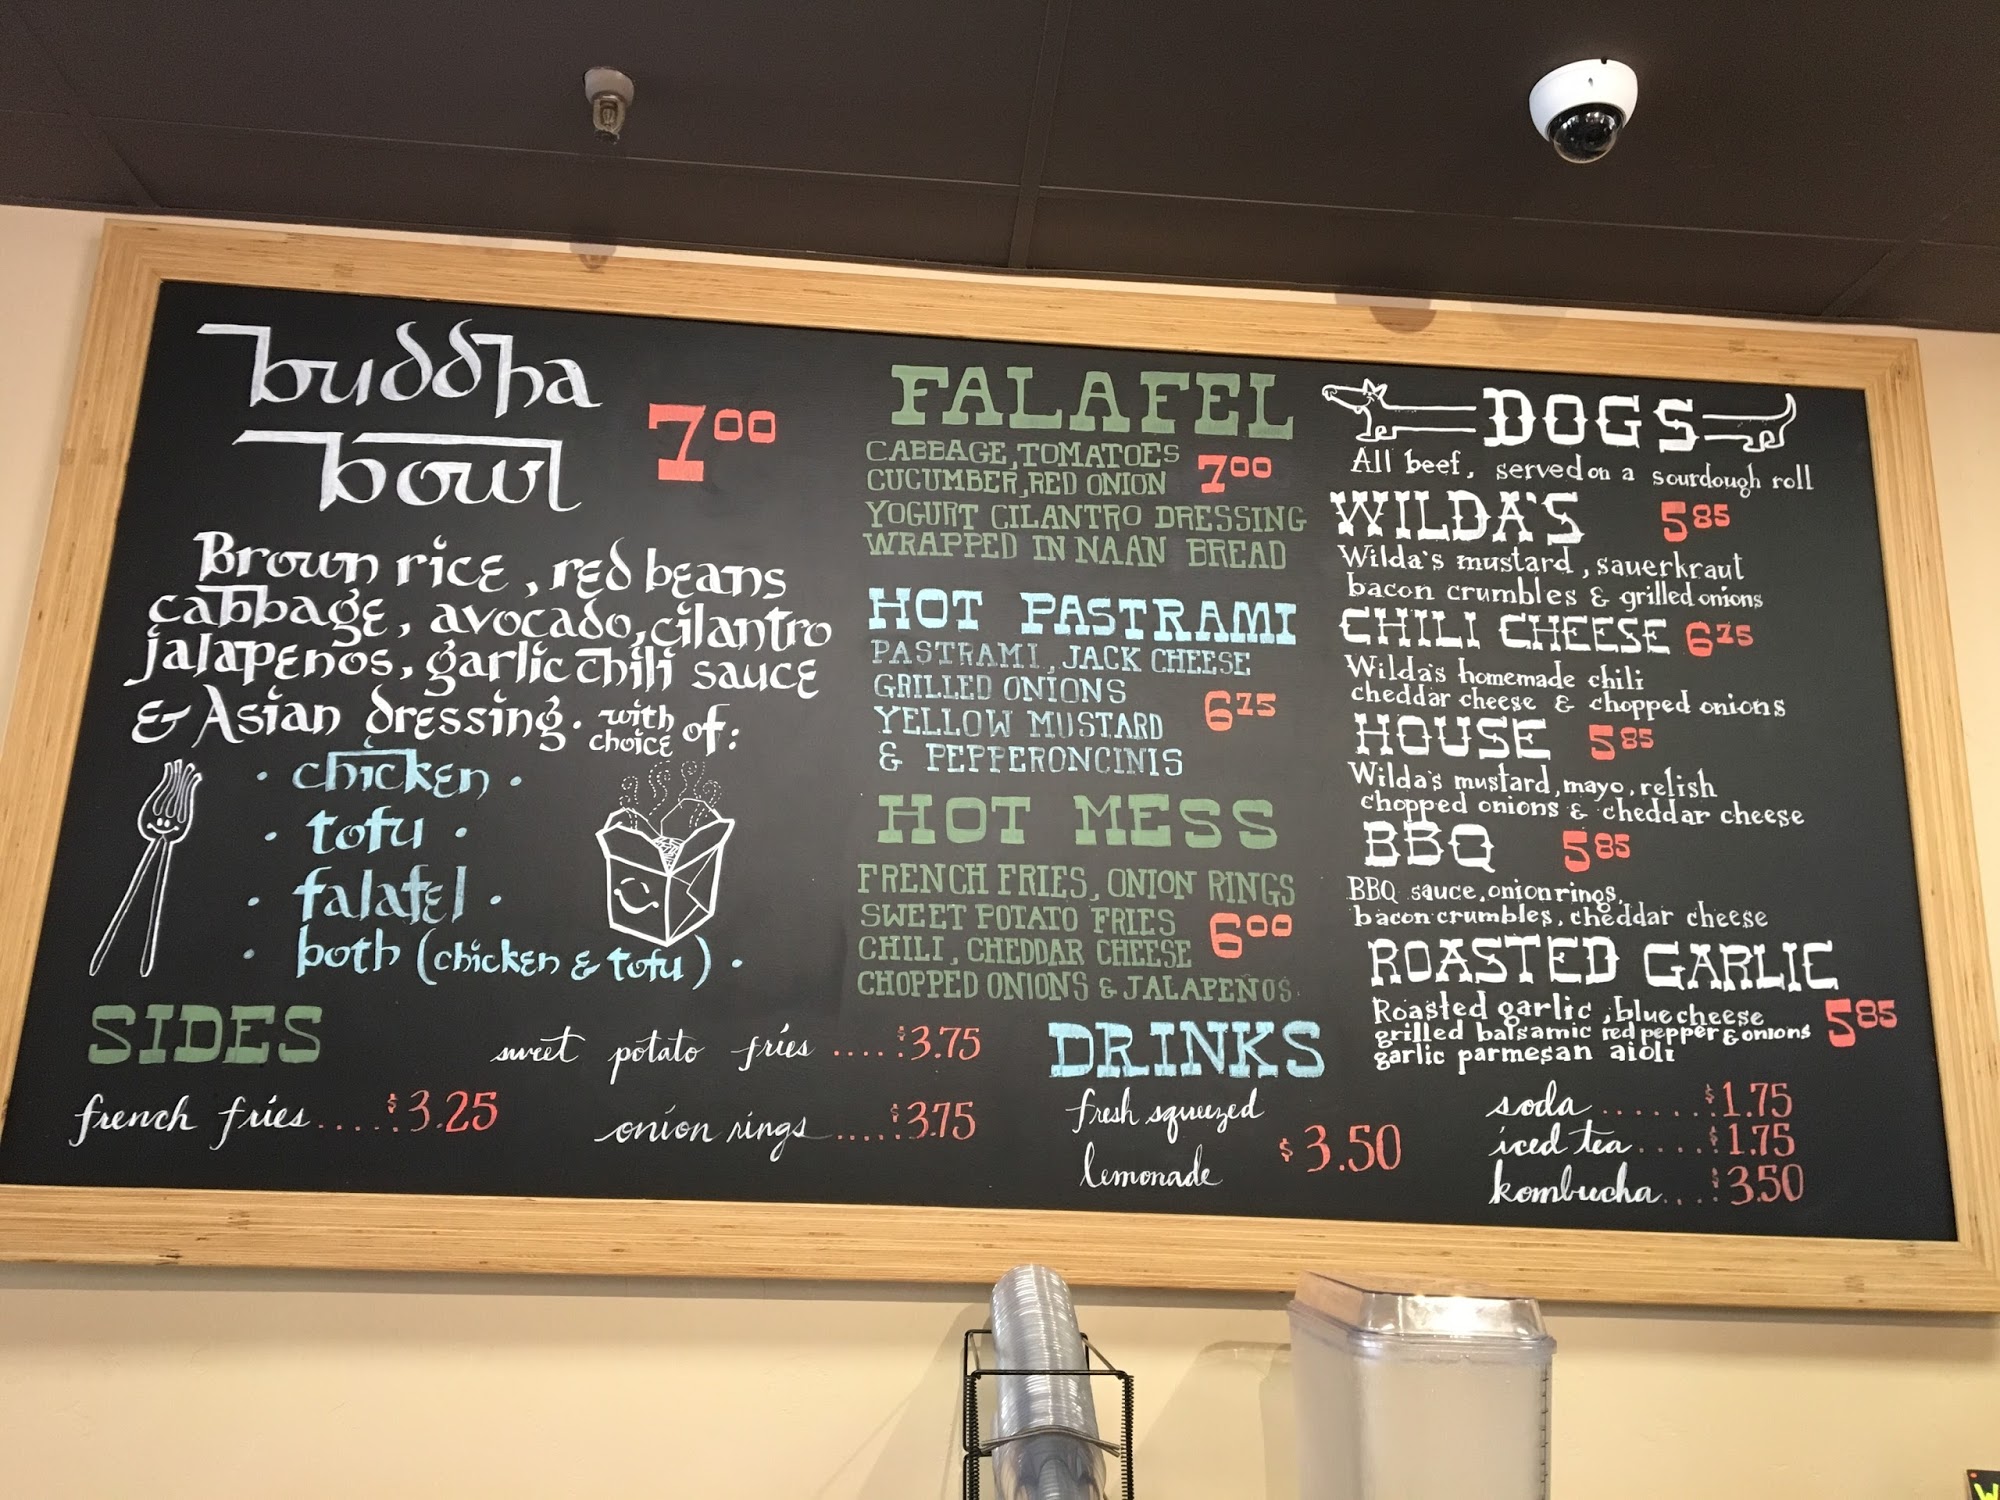 buddha
bowl
7.00
Brown rice, red beans
cabbage, avocado, cilantro
jalapenos, garlic chili sauce
& Asian dressing. with choice of:
• chicken •
• tofu •
• falafel •
• both (chicken & tofu) •
FALAFEL
CABBAGE, TOMATOES
CUCUMBER, RED ONION 7.00
YOGURT CILANTRO DRESSING
WRAPPED IN NAAN BREAD
HOT PASTRAMI
PASTRAMI, JACK CHEESE
GRILLED ONIONS
YELLOW MUSTARD 6.75
& PEPPERONCINIS
HOT MESS
FRENCH FRIES, ONION RINGS
SWEET POTATO FRIES
CHILI, CHEDDAR CHEESE 6.00
CHOPPED ONIONS & JALAPEÑOS.
DOGS
All beef, served on a sourdough roll
WILDA'S 5.85
Wilda's mustard, sauerkraut
bacon crumbles & grilled onions
CHILI CHEESE 6.75
Wilda's homemade chili
cheddar cheese & chopped onions
HOUSE 5.85
Wilda's mustard, mayo, relish
chopped onions & cheddar cheese
BBQ 5.85
BBQ sauce, onion rings,
bacon crumbles, cheddar cheese
ROASTED GARLIC
Roasted garlic, blue cheese
grilled balsamic red pepper & onions 5.85
garlic parmesan aioli
SIDES
french fries.....$3.25
sweet potato fries ....$3.75
onion rings.....$3.75
DRINKS
fresh squeezed
lemonade $3.50
soda.......$1.75
iced tea....$1.75
kombucha...$3.50